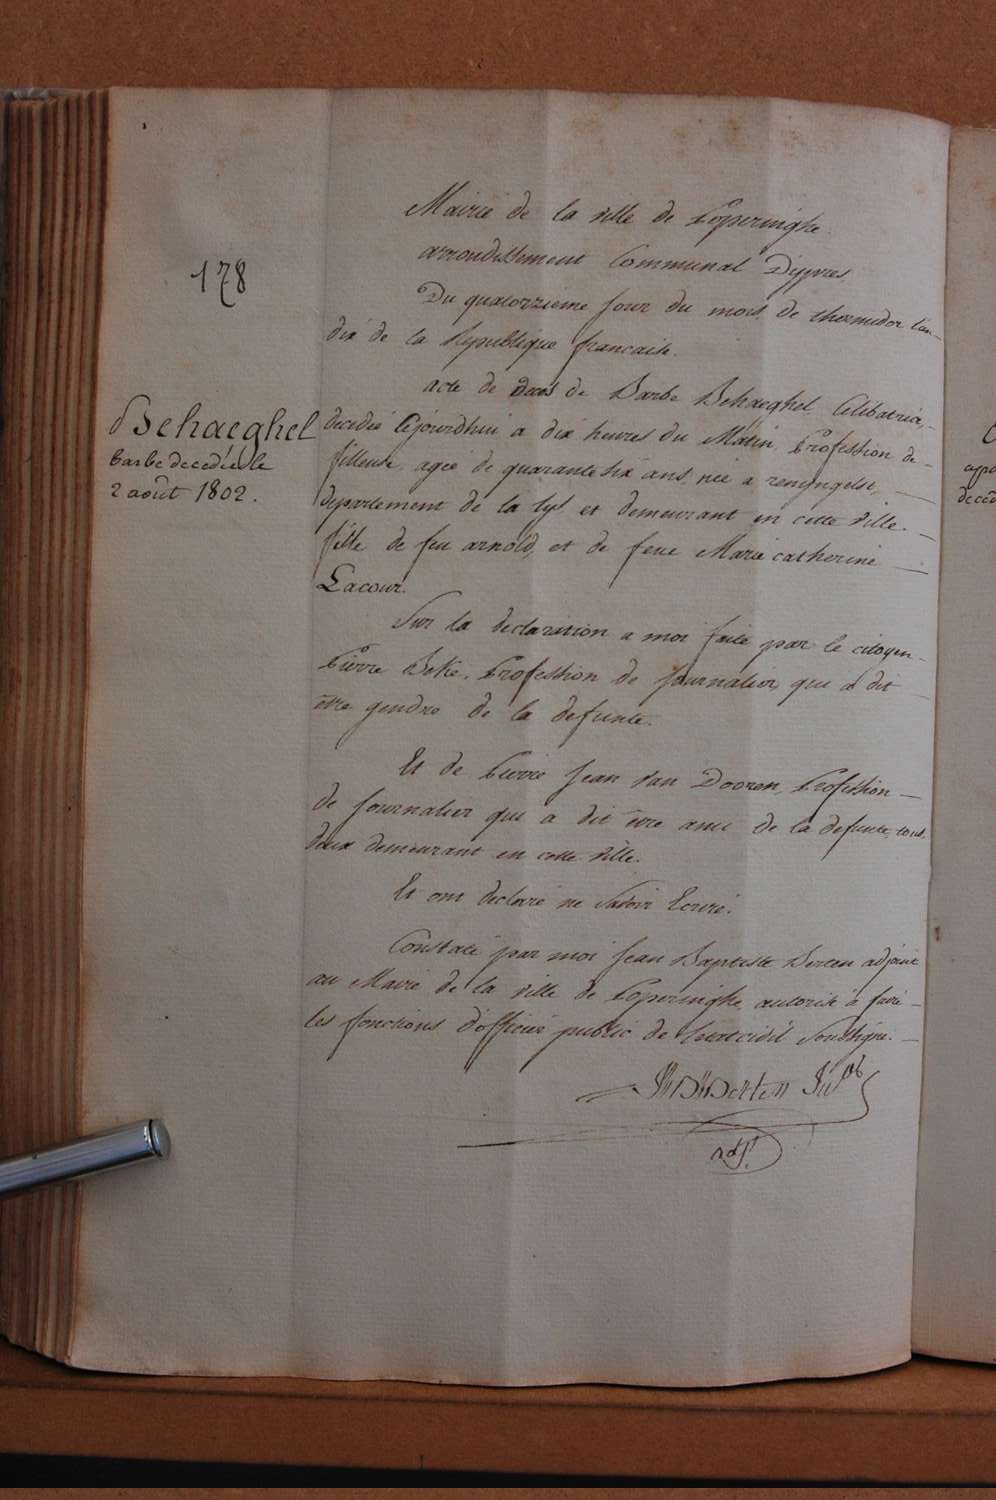 178
Behaeghel
barbe decedée le
2 août 1802.
Mairie de la ville de Poperinghe.
arrondissement Communal Dÿpres,
Du quatorzieme jour du mois de thermidor l'an
dix de la Republique francaise.
acte de Deces de Barbe Behaeghel Celibatrice,
decedée Cejourdhui a dix heures du Matin, Profession de
filleuse, agée de quarante six ans, née a reningelst,
departement de la lys et demeurant en cette ville.
fille de feu arnold, et de feue Marie catherine
Lacour.
Sur la declaration a moi faite par le citoyen
Pierre Beke, Profession de journalier, que a dit
être gendre de la defunte.
Et de Pierre Jean Van Dooren, Profession
de journalier que a dit être ami de la defunte, tous
deux demeurant en cette ville.
Et ont declaré ne savoir Ecrire.
Constaté par moi Jean Baptiste Berten adjoint
au Maire de la ville de Poperinghe, autorisé à faire
les fonctions d'officier public de l'etat civil soussigné.
Berten
adjt.
ap
decéd